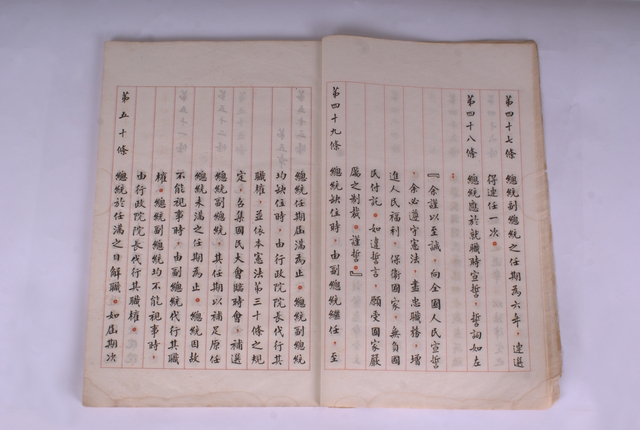 第四十七條 總統副總統之任期為六年，連選
得連任一次。
第四十八條 總統應於就職時宣誓，誓詞如左
：
『余謹以至誠，向全國人民宣誓
，余必遵守憲法，盡忠職務，增
進人民福利，保衛國家，無負國
民付託。如違誓言，願受國家嚴
厲之制裁。謹誓。』
第四十九條 總統缺位時，由副總統繼任，至
總統任期屆滿為止。總統副總統
均缺位時，由行政院院長代行其
職權，並依本憲法第三十條之規
定，召集國民大會臨時會，補選
總統副總統，其任期以補足原任
總統未滿之任期為止。總統因故
不能視事時，由副總統代行其職
權。總統副總統均不能視事時，
由行政院院長代行其職權。
第五十條 總統於任滿之日解職。如屆期次